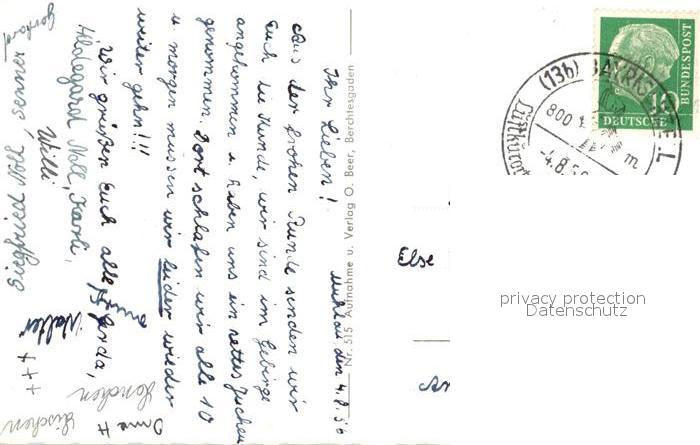 Mühlau, den 4.8.56
Ihr Lieben!
Aus der frohen Runde senden wir
Euch die Kunde, wir sind im Gebirge
angekommen u. haben uns ein nettes
genommen. Dort schlafen wir alle 10
u. morgen müssen wir leider wieder
weiter gehn!!!
Wir grüßen Euch alle Gerda,
Hildegard Noll, Karli,
Willi
Siegfried Noll,
Gerhard
Walter
+++
Hanchen
Anne H
Lischen
Nr. 515 Aufnahme u. Verlag O. Beer, Berchtesgaden
Else
DEUTSCHE
BUNDESPOST
10
(13b) BAYRISCH
800
m
-4.8.56
Luftkurort
privacy protection
Datenschutz